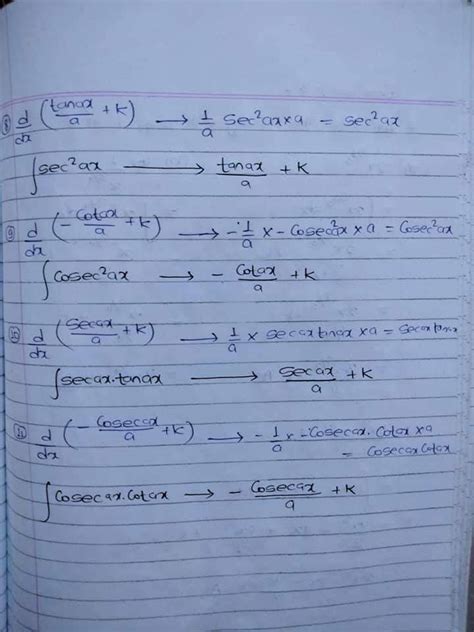 ⑧ d/dx (tanax/a + k) → 1/a sec²ax×a = sec²ax
∫sec²ax → tanax/a + k
⑨ d/dx (-Cotax/a + k) → -1/a × -Cosec²ax × a = Cosec²ax
∫Cosec²ax → - Cotax/a + k
⑩ d/dx (Secax/a + k) → 1/a × secaxtanax×a = secaxtanax
∫secax.tanax → secax/a + k
⑪ d/dx (-Cosecax/a + k) → -1/a × -Cosecax. Cotax×a
= Cosecax Cotax
∫Cosecax.Cotax → - Cosecax/a + k